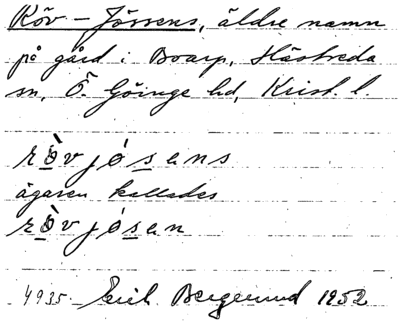 Röv - Jössens, äldre namn
på gård i Boarp, Hästveda
sn, Ö. Göinge hd, Krist. l.
rövjösens
ägaren kallades
rövjösen
4935. Erik Bergerund 1952